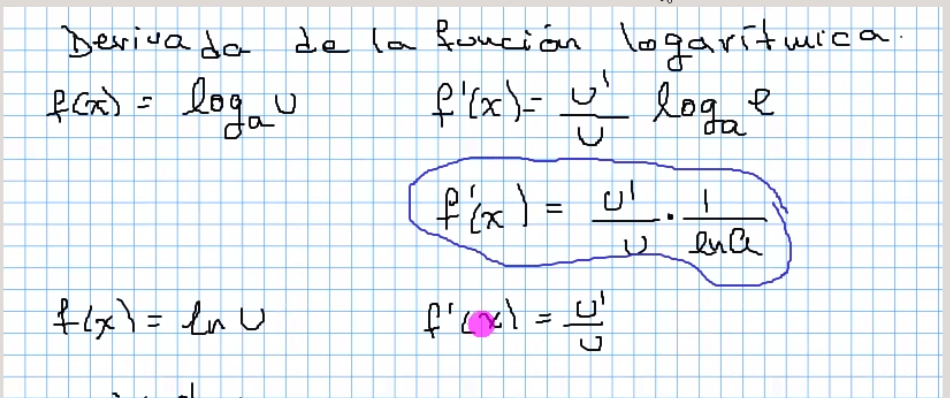 Derivada de la función logarítmica.
f(x) = logₐ U f'(x) = U'/U logₐ e
f'(x) = U'/U · 1/ln a
f(x) = ln U f'(x) = U'/U